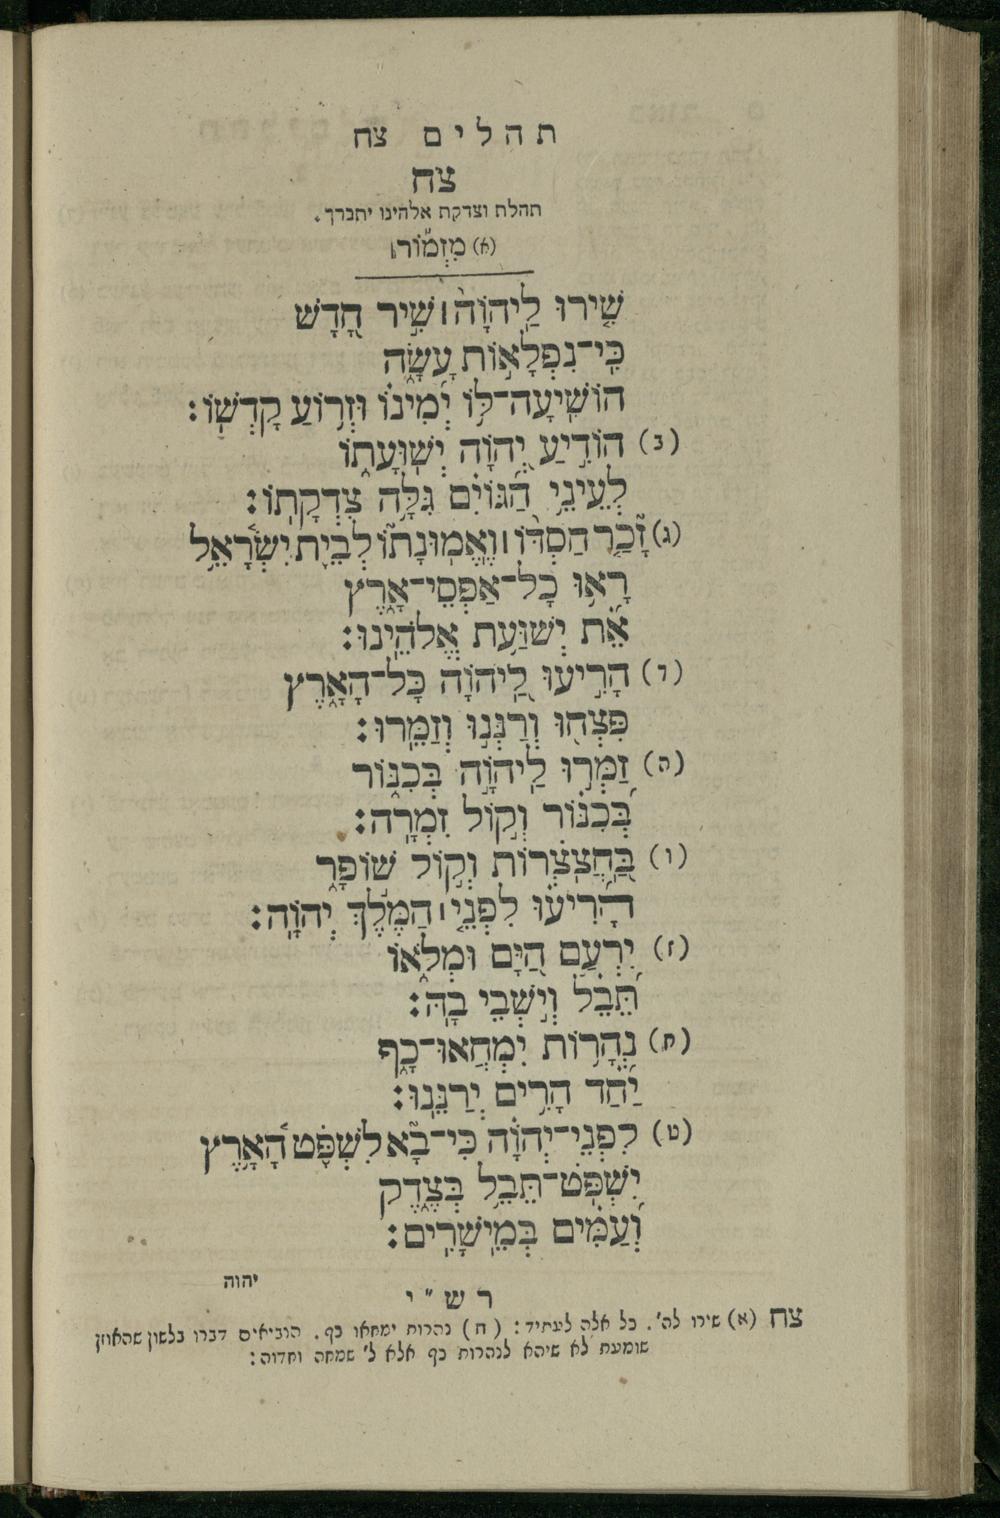 תהלים צח
צח
תהלת וצדקת אלהינו יתברך.
(א) מִזְמ֡וֹר׀
שִׁ֤ירוּ לַֽיהוָ֨ה׀ שִׁ֣יר חָ֭דָשׁ
כִּֽי־נִפְלָא֣וֹת עָשָׂ֑ה
הוֹשִֽׁיעָה־לּ֥וֹ יְ֝מִינ֗וֹ וּזְר֥וֹעַ קָדְשֽׁוֹ׃
(ב) הוֹדִ֣יעַ יְ֭הוָה יְשׁוּעָת֑וֹ
לְעֵינֵ֥י הַ֝גּוֹיִ֗ם גִּלָּ֥ה צִדְקָתֽוֹ׃
(ג) זָ֘כַ֤ר חַסְדּ֨וֹ׀ וֶֽאֱמוּנָתוֹ֮ לְבֵ֪ית יִשְׂרָ֫אֵ֥ל
רָא֥וּ כָל־אַפְסֵי־אָ֑רֶץ
אֵ֝֗ת יְשׁוּעַ֥ת אֱלֹהֵֽינוּ׃
(ד) הָרִ֣יעוּ לַֽ֭יהוָה כָּל־הָאָ֑רֶץ
פִּצְח֖וּ וְרַנְּנ֣וּ וְזַמֵּֽרוּ׃
(ה) זַמְּר֣וּ לַיהוָ֣ה בְּכִנּ֑וֹר
בְּ֝כִנּ֗וֹר וְק֣וֹל זִמְרָֽה׃
(ו) בַּ֭חֲצֹ֣צְרוֹת וְק֣וֹל שׁוֹפָ֑ר
הָ֝רִ֗יעוּ לִפְנֵ֤י׀ הַמֶּ֬לֶךְ יְהוָֽה׃
(ז) יִרְעַ֣ם הַ֭יָּם וּמְלֹא֑וֹ
תֵּ֝בֵ֗ל וְיֹ֣שְׁבֵי בָֽהּ׃
(ח) נְהָר֥וֹת יִמְחֲאוּ־כָ֑ף
יַ֝֗חַד הָרִ֥ים יְרַנֵּֽנוּ׃
(ט) לִֽפְנֵי־יְהוָ֗ה כִּי־בָ֮א לִשְׁפֹּ֪ט הָ֫אָ֥רֶץ
יִשְׁפֹּֽט־תֵּבֵ֥ל בְּצֶ֑דֶק
וְ֝עַמִּ֗ים בְּמֵישָׁרִֽים׃
יהוה
רש"י
צח (א) שירו לה'. כל אלה לעתיד: (ח) נהרות ימחאו כף. הנביאים דברו בלשון שהאוזן
שומעת לא שיהא לנהרות כף אלא ל' שמחה וחדוה: